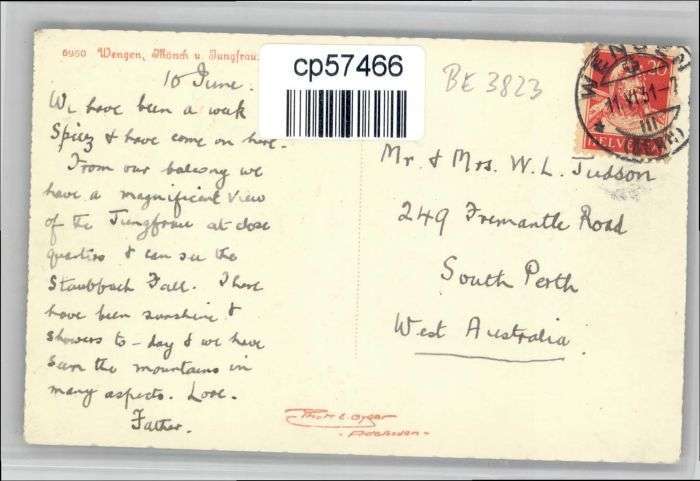 6950 Wengen, Mönch u. Jungfrau.
cp57466
BE 3823
WENGEN
11.VI.31-7
30
HELVETIA
(BERN)
10 June.
We have been a week
Spiez & have come on here.
From our balcony we
have a magnificent view
of the Jungfrau at close
quarters & can see the
Staubbach Fall. There
have been sunshine &
showers to-day & we have
seen the mountains in
many aspects. Love.
Father.
Mr. & Mrs. W. L. Judson
249 Fremantle Road
South Perth
West Australia.